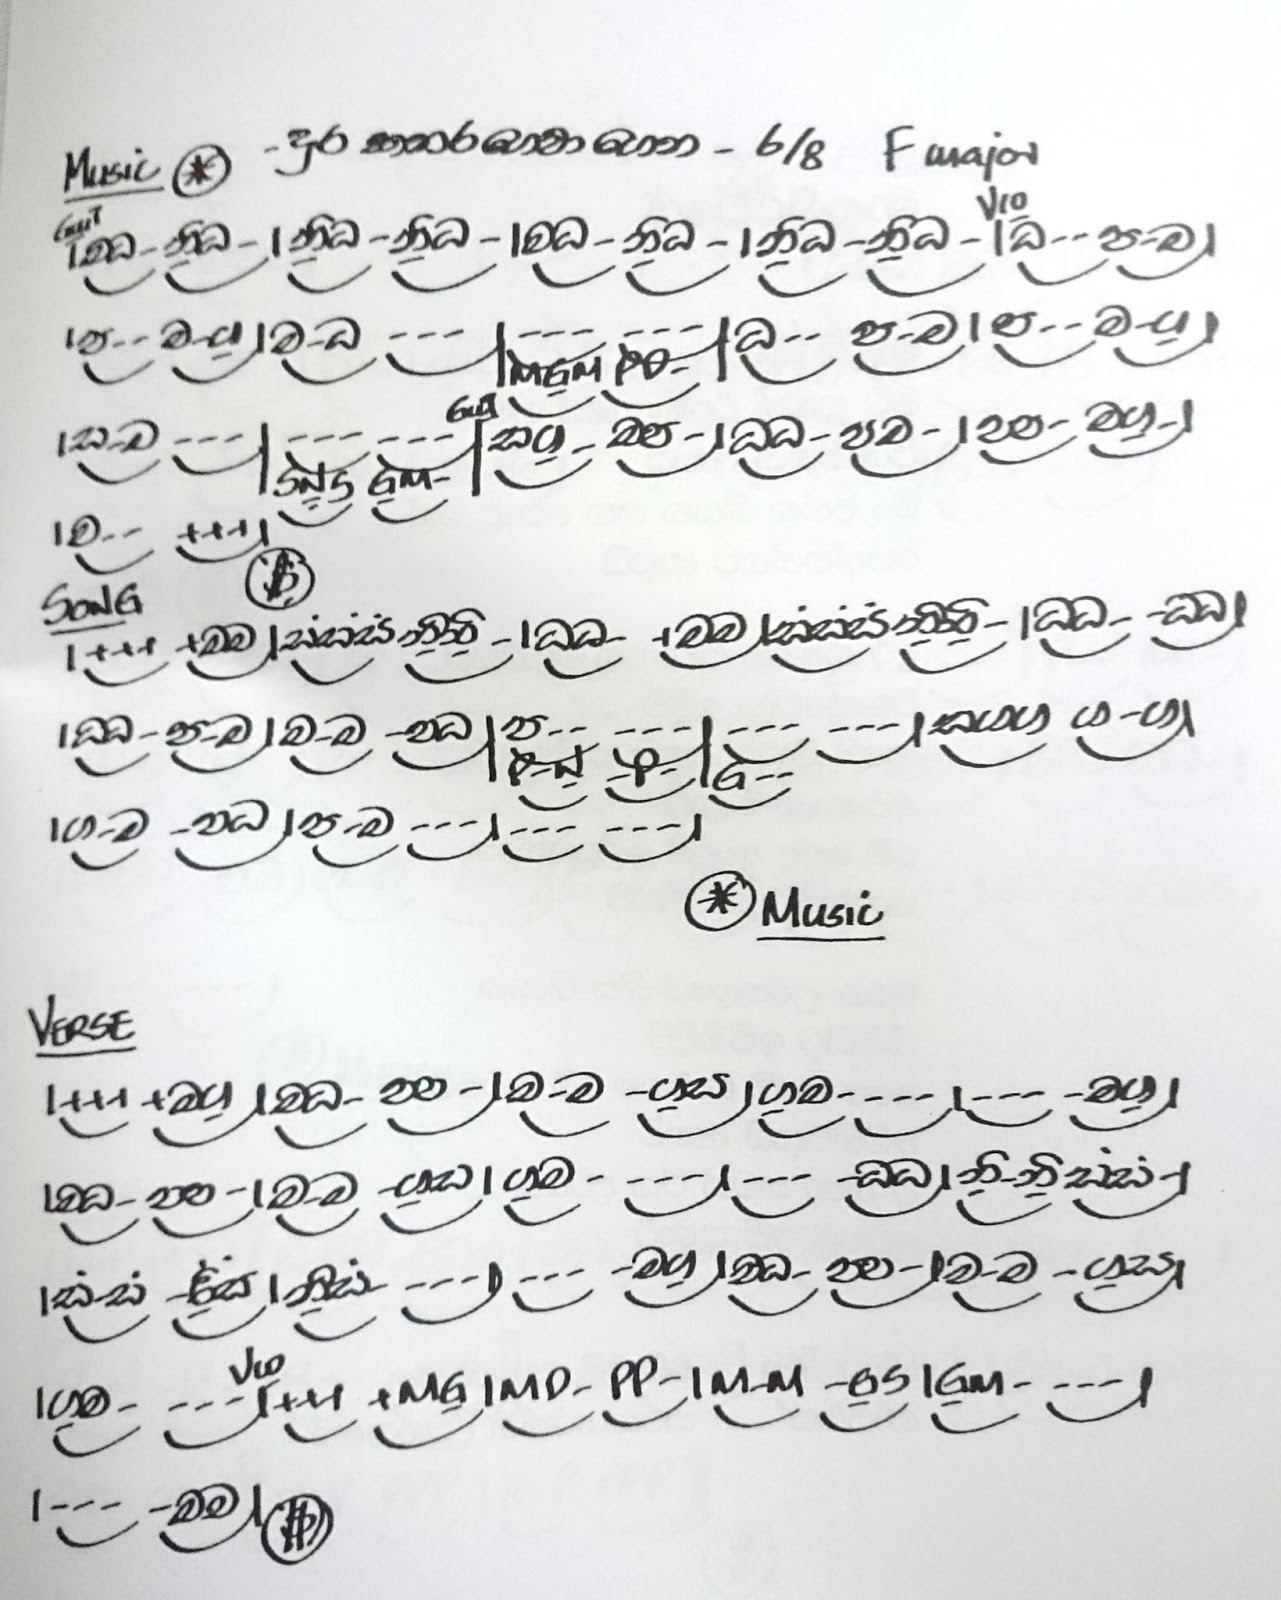 Music * - පුර - 6/8 F major
Guit Vio
|මධ- නි़ධ- | නි़ධ- නි़ධ- | මධ- නි़ධ- | නි़ධ- නි़ධ- | ධ-- ප-ම |
| ප-- ම-ග़ | ම-ධ --- | --- --- | ධ-- ප-ම | ප-- ම-ග़ |
MG̣M PD-
Guit
| ස-ම --- | --- --- | සග़- මප- | ධධ- පම- | පප- මග़- |
SṆS G̣M-
| ම-- +++ |
SONG
| +++ +මම | ස්ස්ස් නි़නි़- | ධධ- +මම | ස්ස්ස් නි़නි़- | ධධ- -ධධ |
| ධධ- ප-ම | ම-ම -පධ | ප-- --- | --- --- | සගග ග-ග |
P-Ṇ -P- G--
| ග-ම -පධ | ප-ම --- | --- --- |
* Music
VERSE
| +++ +මග़ | මධ- පප- | ම-ම -ග़ස | ග़ම- --- | --- -මග़ |
| මධ- පප- | ම-ම -ග़ස | ග़ම- --- | --- -ධධ | නි़-නි़ ස්ස්- |
| ස්-ස් -රි़ස් | නි़ස්- --- | --- -මග़ | මධ- පප- | ම-ම -ග़ස |
Vio
| ග़ම- --- | +++ +MG̣ | MD- PP- | M-M -G̣S | G̣M- --- |
| --- -මම |